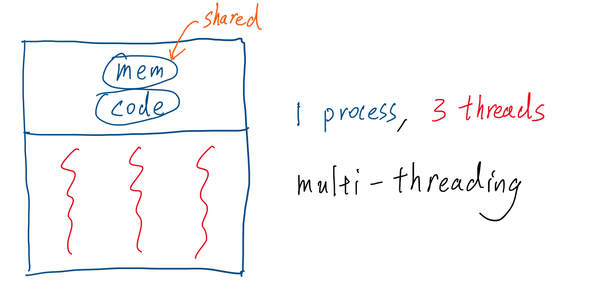 shared
mem
code
1 process, 3 threads
multi-threading